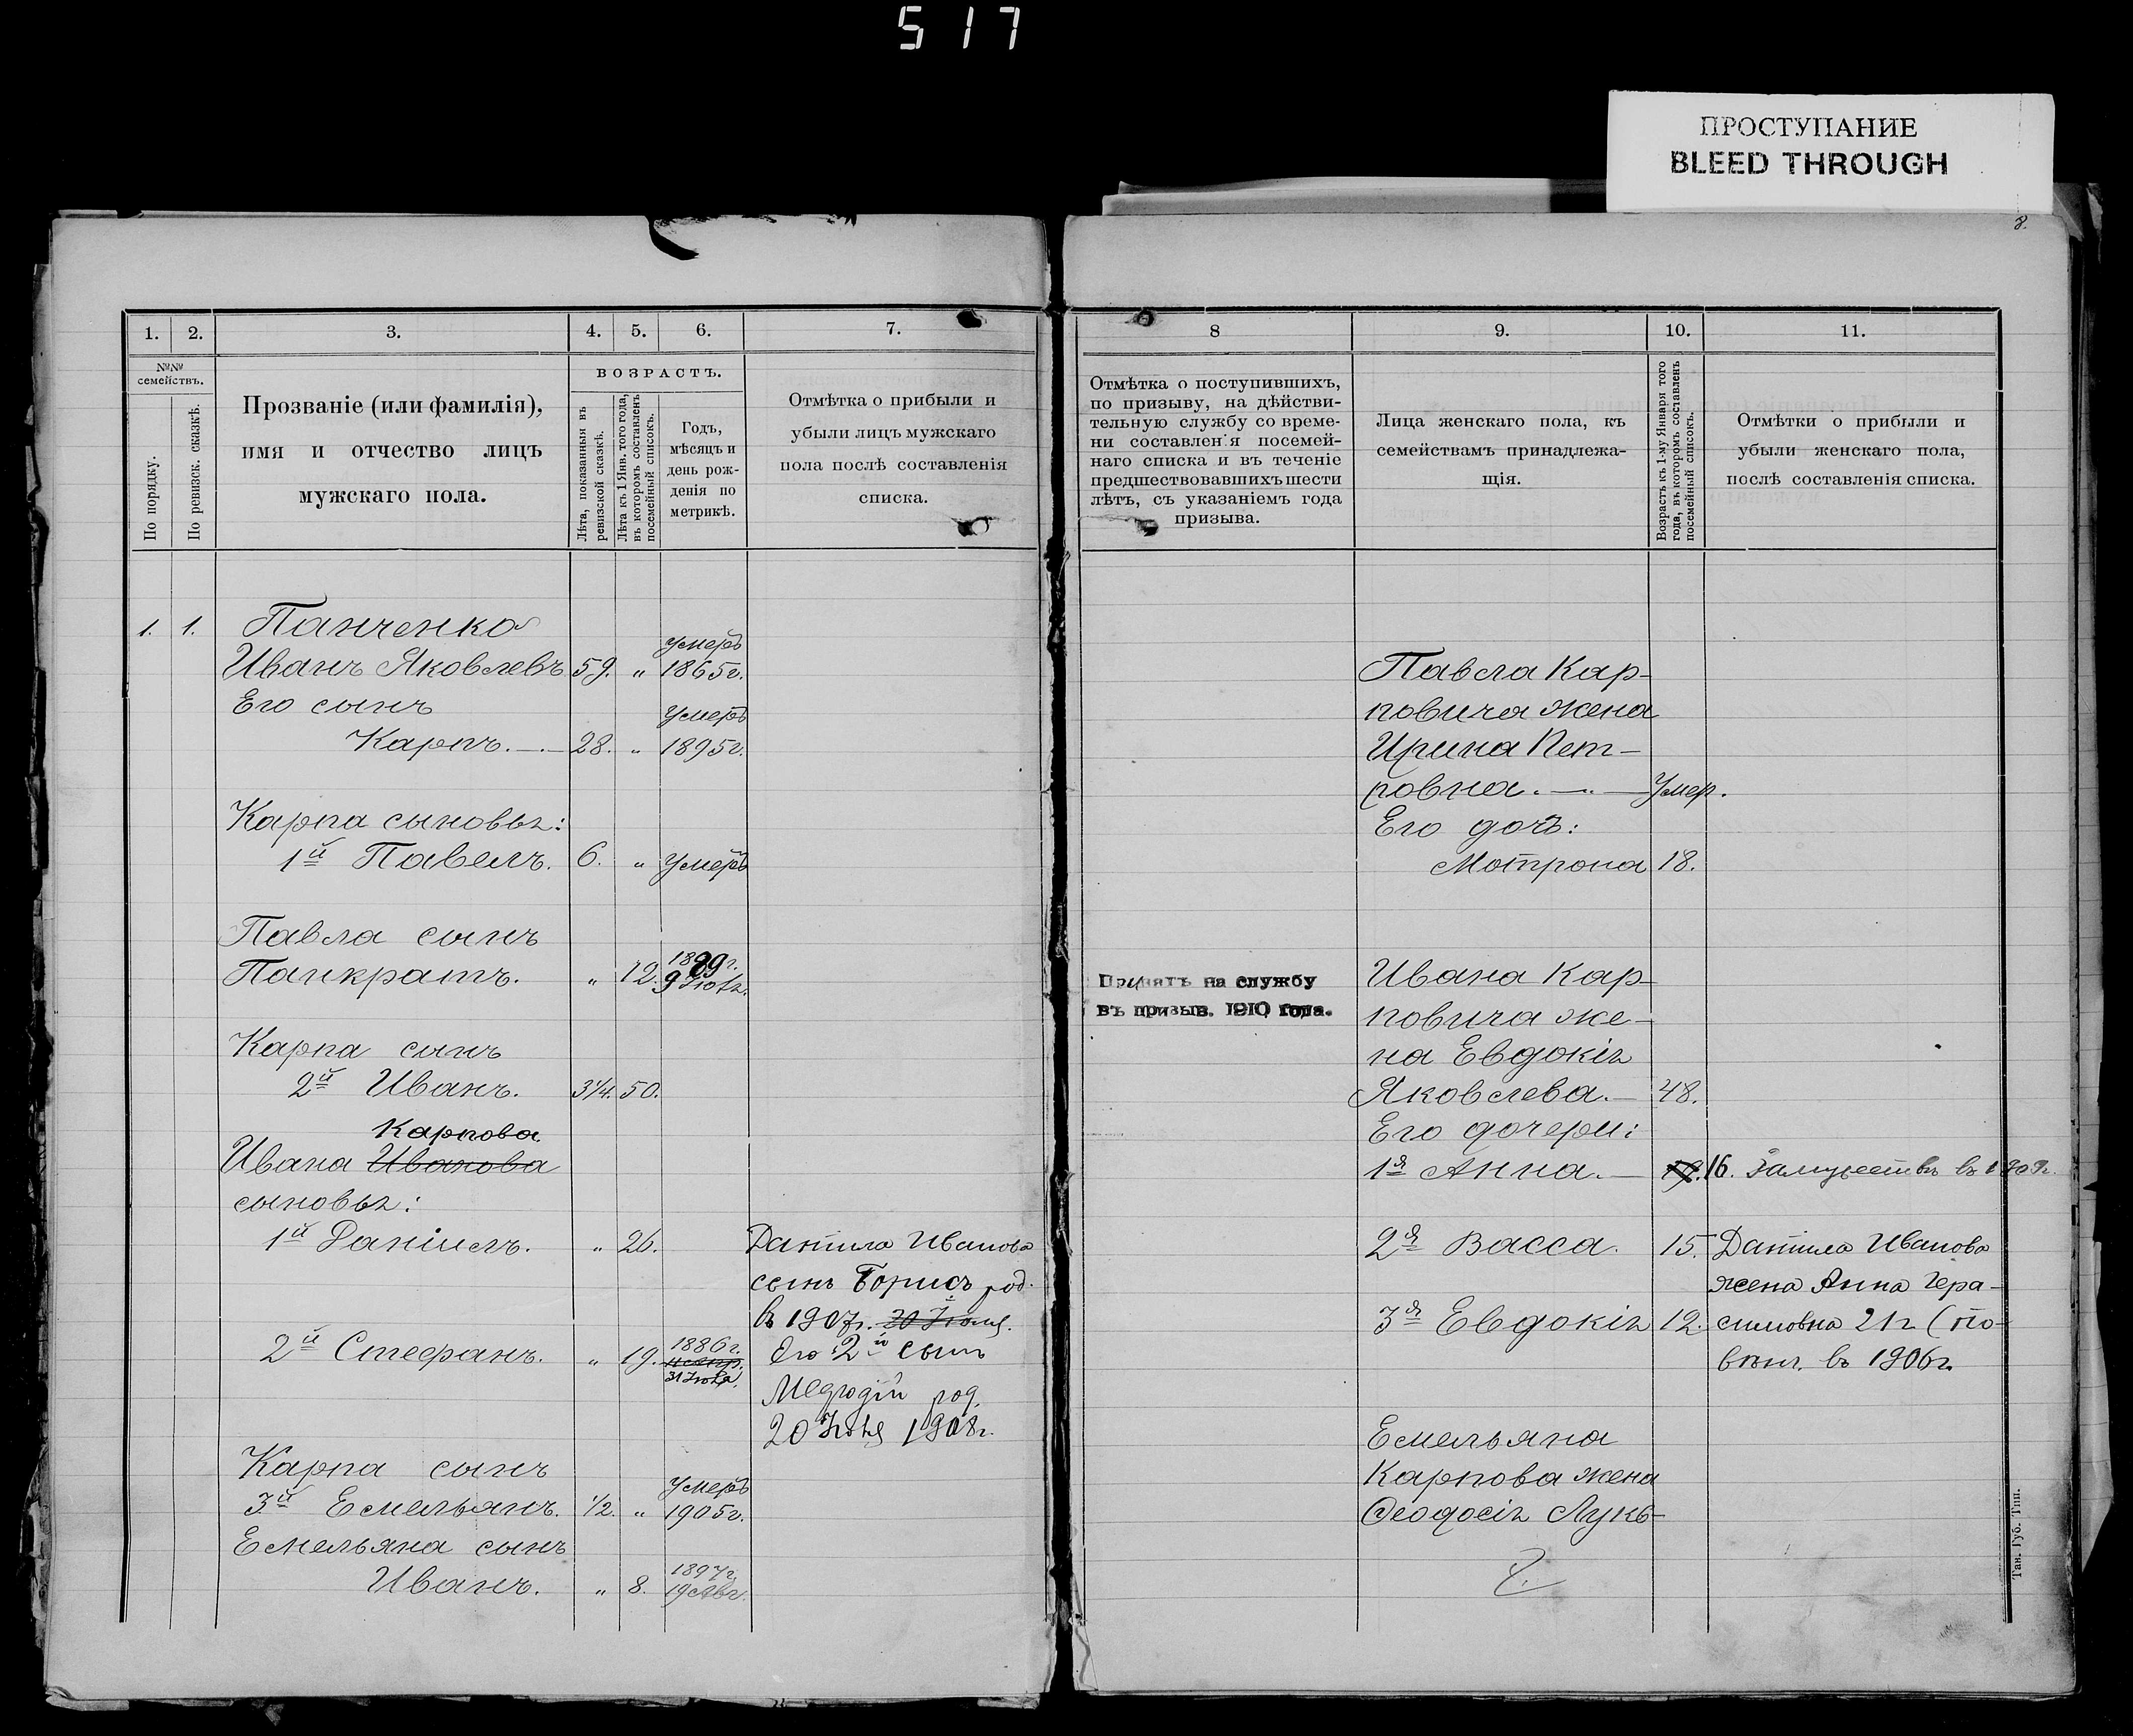 517
ПРОСТУПАНИЕ
BLEED THROUGH
8.
1.
2.
3.
4.
5.
6.
7.
№№
семействъ.
По порядку.
По ревизск. сказкѣ.
Прозваніе (или фамилія),
имя и отчество лицъ
мужскаго пола.
ВОЗРАСТЪ.
Лѣта, показанныя въ
ревизской сказкѣ.
Лѣта къ 1 Янв. того года,
въ которомъ составленъ
посемейный списокъ.
Годъ,
мѣсяцъ и
день рож-
денія по
метрикѣ.
Отмѣтка о прибыли и
убыли лицъ мужскаго
пола послѣ составленія
списка.
1. 1. Панченко
Умеръ
Иванъ Яковлевъ 59. " 1865г.
Его сынъ
Умеръ
Карпъ. 28. " 1895г.
Карпа сыновья:
1й Павелъ. 6. " Умеръ
Павла сынъ
Панкратъ. " 12.
Карпа сынъ
2й Иванъ. 3¼. 50.
Карпова
Ивана Иванова
сыновья:
1й Даніилъ. " 26. Данiила Иванова
сынъ Борисъ род.
в 1907г.
2й Стефанъ. " 19. 1886г. Его 2й сынъ
Меѳодій род.
20 1908г.
Карпа сынъ
Умеръ
3й Емельянъ. ½. " 1905г.
Емельяна сынъ
1897г.
Иванъ. " 8. 19 Авг.
8
9.
10.
11.
Отмѣтка о поступившихъ,
по призыву, на дѣйстви-
тельную службу со време-
ни составленія посемей-
наго списка и въ теченіе
предшествовавшихъ шести
лѣтъ, съ указаніемъ года
призыва.
Лица женскаго пола, къ
семействамъ принадлежа-
щія.
Возрастъ къ 1-му Января того
года, въ которомъ составленъ
посемейный списокъ.
Отмѣтки о прибыли и
убыли женскаго пола,
послѣ составленія списка.
Павла Кар-
повича жена
Ирина Пет-
ровна. Умер.
Его дочь:
Мотрона 18.
Принятъ на службу
въ призыв. 1910 года.
Ивана Кар-
повича же-
на Евдокія
Яковлева. 48.
Его дочери:
1я Анна. 16. Замужеств въ 1909г.
2я Васса. 15. Данiила Иванова
жена Анна Гера-
3я Евдокія 12. симовна 21г (по-
вѣнч. въ 1906г.
Емельяна
Карпова жена
Ѳеодосія Лукь-
Тип.
Губ.
Тав.